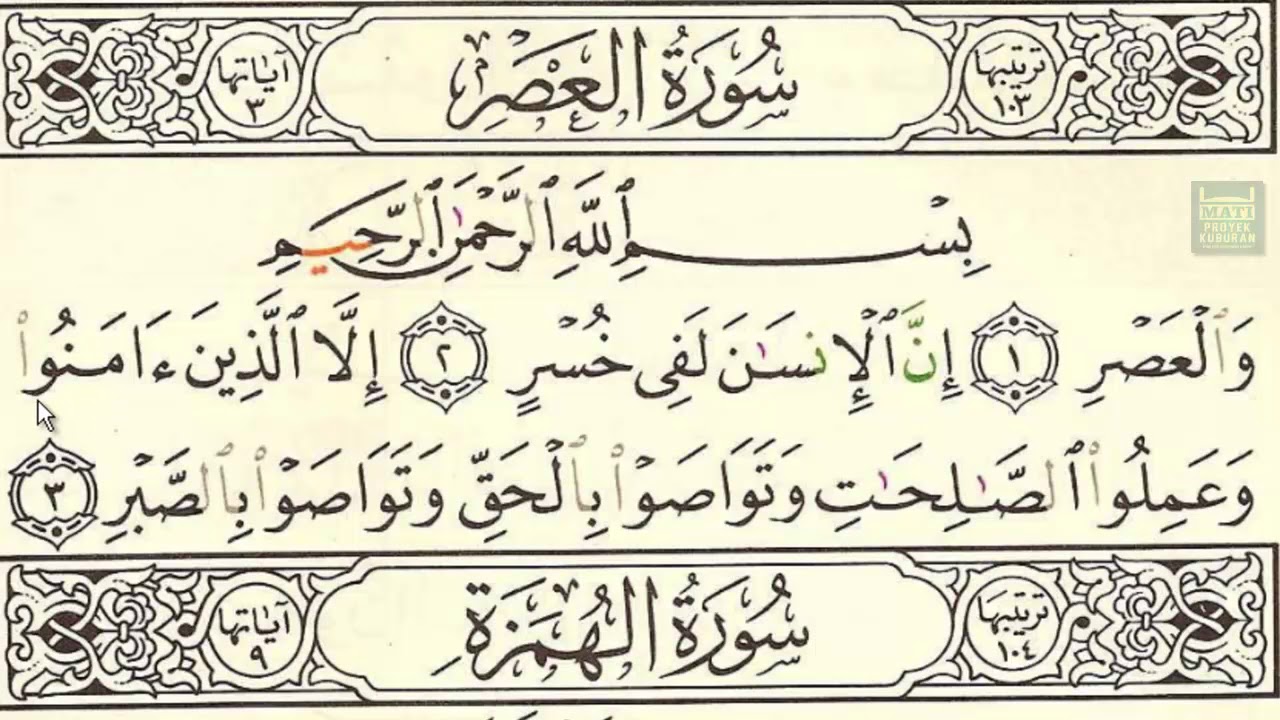 ترتيبها ١٠٣ سُورَةُ العَصْرِ آياتها ٣
بِسْمِ ٱللَّهِ ٱلرَّحْمَٰنِ ٱلرَّحِيمِ
MATI
PROYEK
KUBURAN
وَٱلْعَصْرِ ١ إِنَّ ٱلْإِنسَٰنَ لَفِى خُسْرٍ ٢ إِلَّا ٱلَّذِينَ ءَامَنُوا۟
وَعَمِلُوا۟ ٱلصَّٰلِحَٰتِ وَتَوَاصَوْا۟ بِٱلْحَقِّ وَتَوَاصَوْا۟ بِٱلصَّبْرِ ٣
ترتيبها ١٠٤ سُورَةُ الهُمَزَةِ آياتها ٩